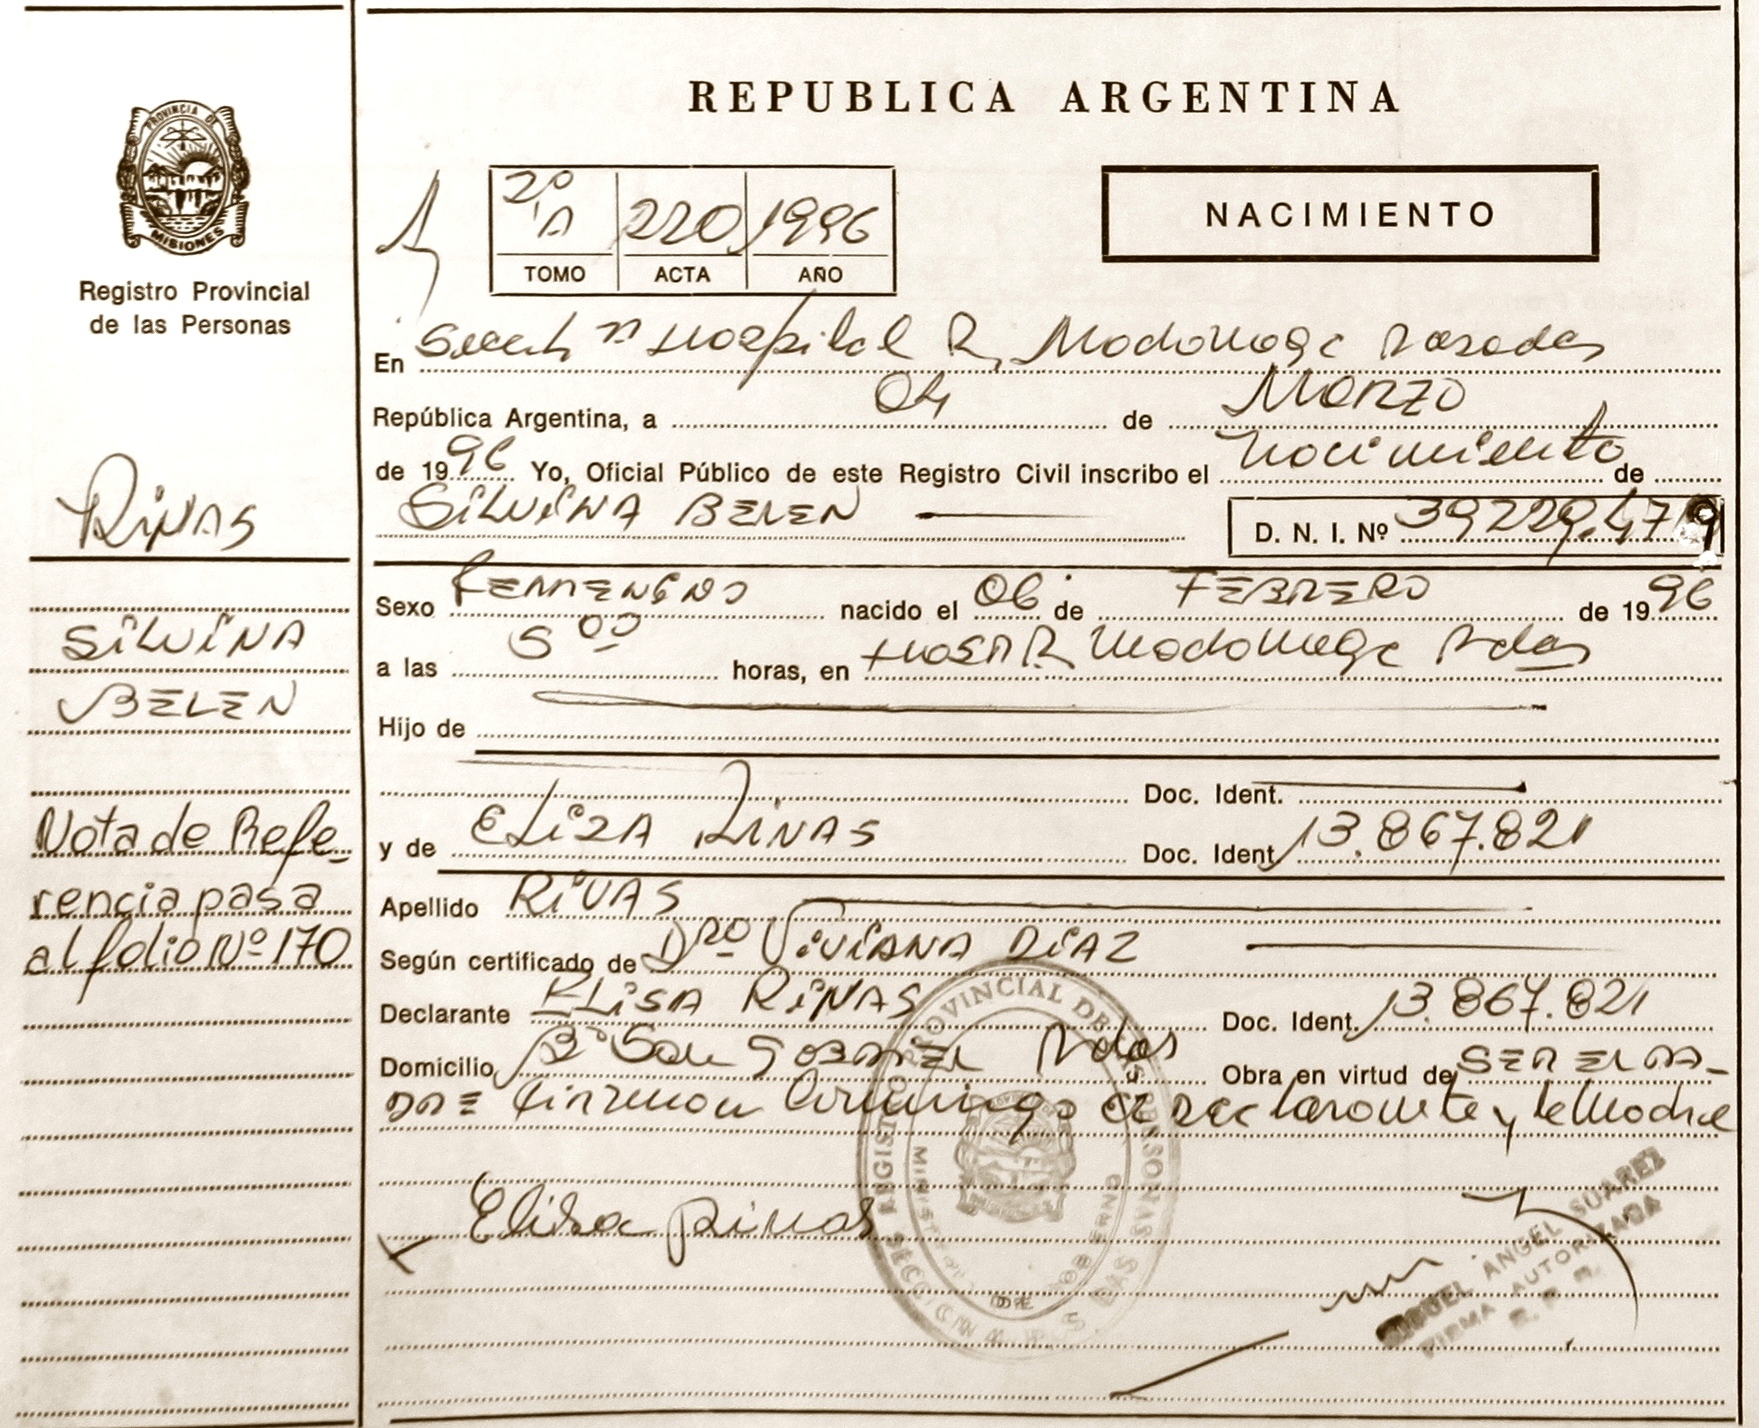 REPUBLICA ARGENTINA
PROVINCIA DE
MISIONES
Registro Provincial
de las Personas
2º
A 220 1996
TOMO ACTA AÑO
NACIMIENTO
En Hospital R. Madariaga Posadas
República Argentina, a 04 de Marzo
de 1996 Yo, Oficial Público de este Registro Civil inscribo el Nacimiento de
SILVINA BELEN
D. N. I. Nº 39229.479
RIVAS
SILVINA
BELEN
Sexo FEMENINO nacido el 06 de FEBRERO de 1996
a las 5 00 horas, en HOSP. R. Madariaga Pdas
Hijo de
Doc. Ident.
y de ELISA RIVAS Doc. Ident. 13.867.821
Nota de Refe-
rencia pasa
al folio Nº 170
Apellido RIVAS
Según certificado de Dra VIVIANA DIAZ
Declarante ELISA RIVAS Doc. Ident. 13.867.821
Domicilio Bº San GABRIEL Pdas Obra en virtud de SER EL MA-
DRE Firman conmigo el Declarante y la Madre
Elisa Rivas
REGISTRO PROVINCIAL DE LAS PERSONAS
MIGUEL ANGEL SUAREZ
FIRMA AUTORIZADA